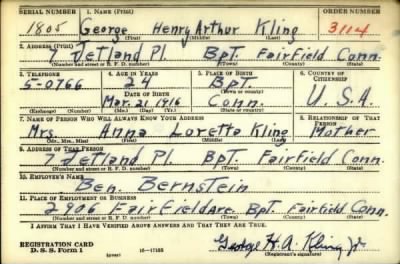 SERIAL NUMBER 1. NAME (Print) ORDER NUMBER
1805 George Henry Arthur Kling 3114
(First) (Middle) (Last)
2. ADDRESS (Print)
7 Jetland Pl. Bpt. Fairfield Conn.
(Number and street or R. F. D. number) (Town) (County) (State)
3. TELEPHONE 4. AGE IN YEARS 5. PLACE OF BIRTH 6. COUNTRY OF CITIZENSHIP
5-0766 24 Bpt.
DATE OF BIRTH (Town or county)
Mar. 21, 1916 Conn. U.S.A.
(Exchange) (Number) (Mo.) (Day) (Yr.) (State or country)
7. NAME OF PERSON WHO WILL ALWAYS KNOW YOUR ADDRESS 8. RELATIONSHIP OF THAT PERSON
Mrs. Anna Loretta Kling Mother
(Mr., Mrs., Miss) (First) (Middle) (Last)
9. ADDRESS OF THAT PERSON
7 Jetland Pl. Bpt. Fairfield Conn.
(Number and street or R. F. D. number) (Town) (County) (State)
10. EMPLOYER'S NAME
Ben. Bernstein
11. PLACE OF EMPLOYMENT OR BUSINESS
2906 Fairfield Ave. Bpt. Fairfield Conn.
(Number and street or R. F. D. number) (Town) (County) (State)
I AFFIRM THAT I HAVE VERIFIED ABOVE ANSWERS AND THAT THEY ARE TRUE.
REGISTRATION CARD
D. S. S. Form 1 (over) 16—17105 George H. A. Kling Jr.
(Registrant's signature)